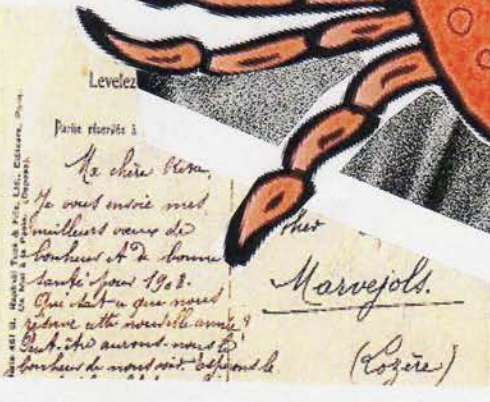 Levelez
Partie réservée à
Ma chère
Je vous envoie mes
meilleurs vœux de
bonheur et de bonne
santé pour 1908.
Qui sait ce que nous
réserve cette nouvelle année ?
Peut-être aurons-nous le
bonheur de nous voir. Espérons le
ther
Marvejols.
(Lozère)
Raphael Tuck & Fils, Ltd., Editeurs, Paris.
Un Mot à la Poste. (Déposé).